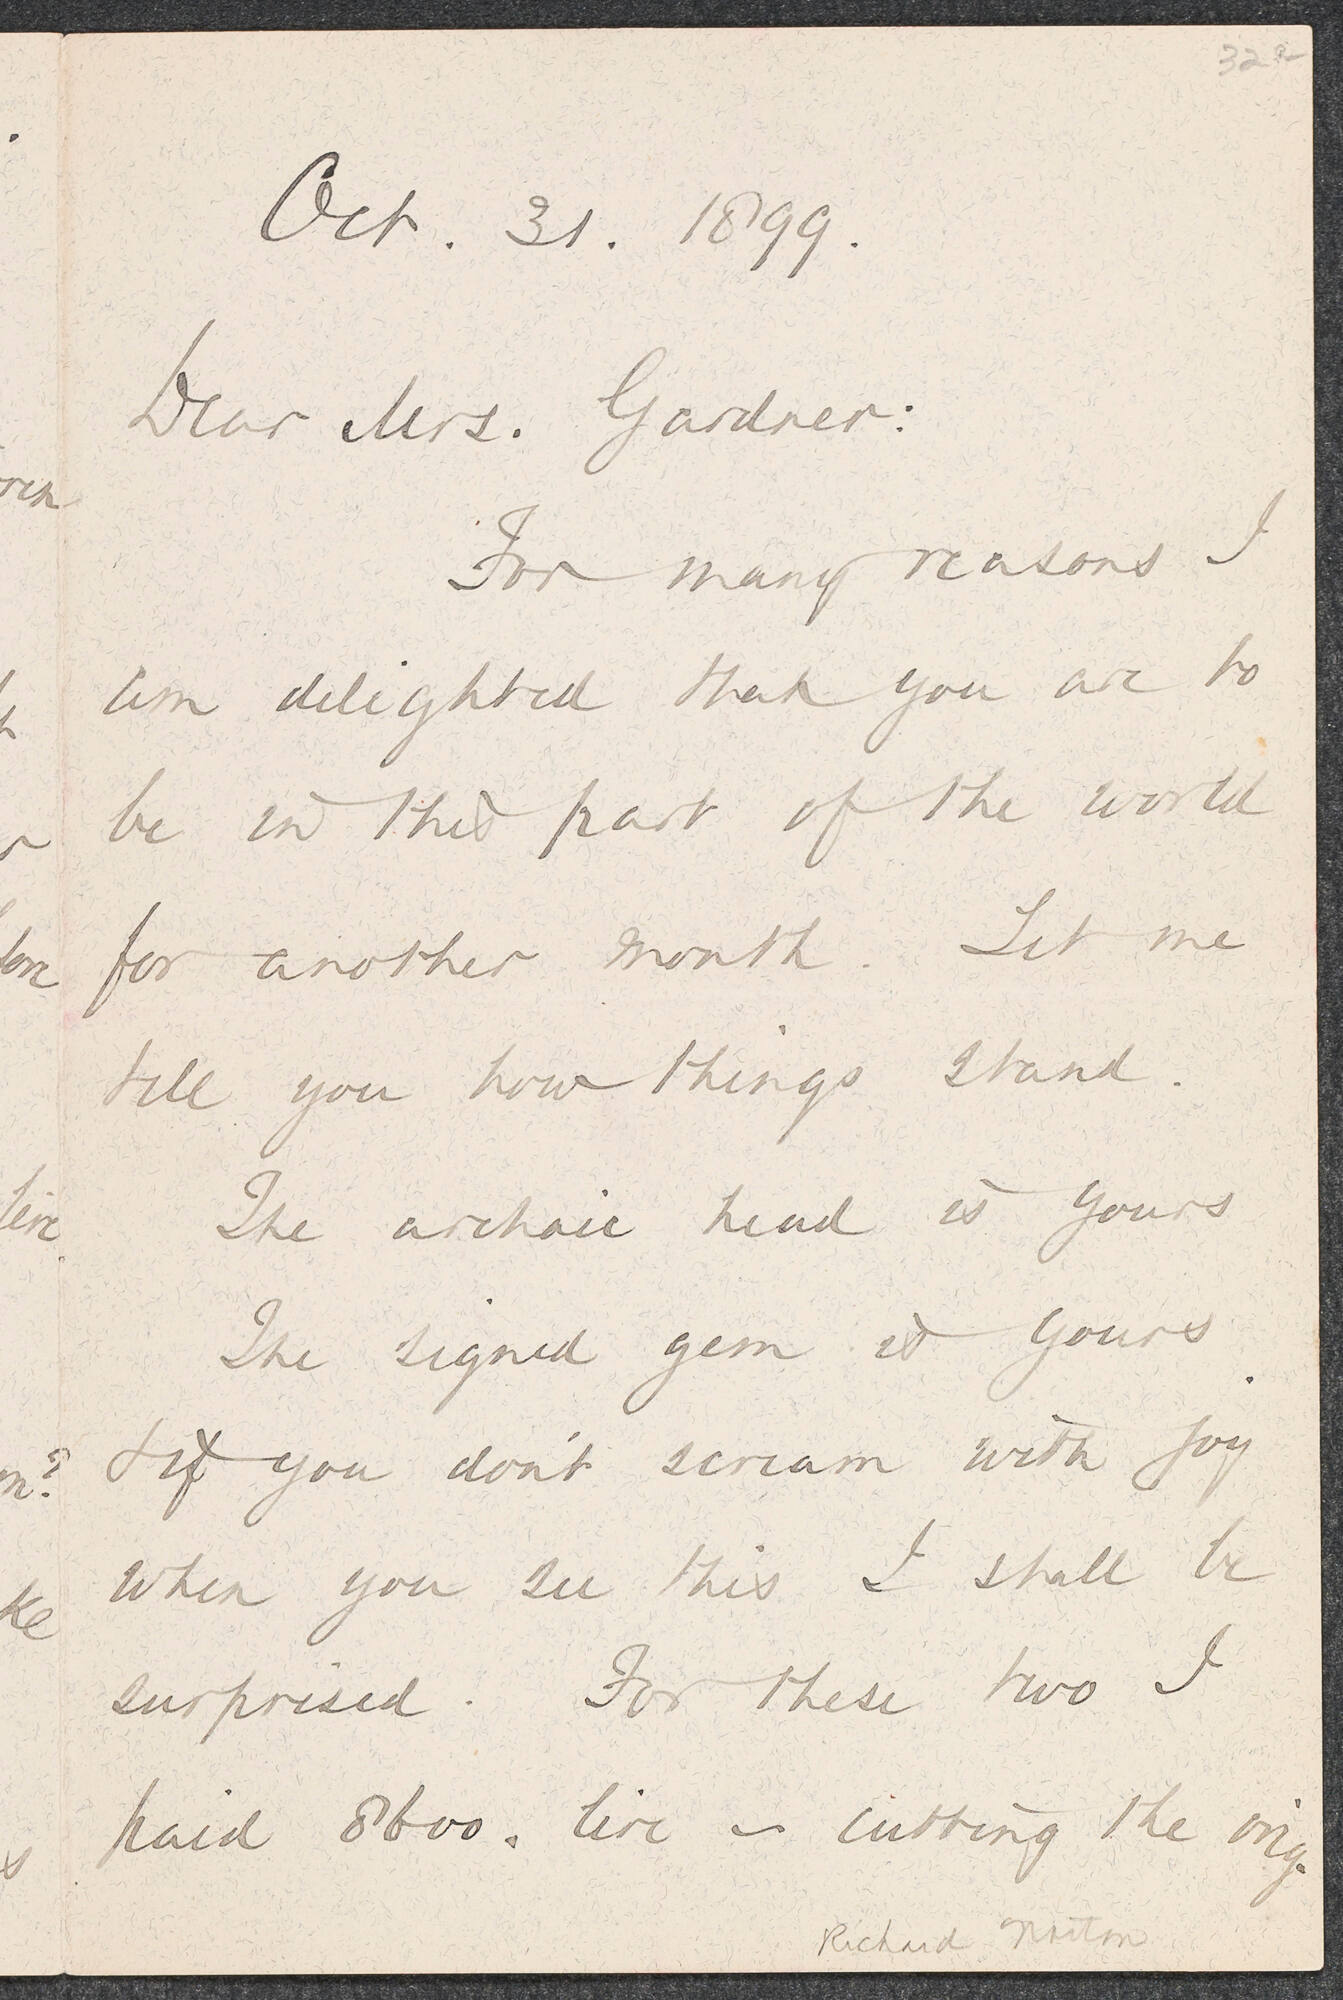 32a
Oct. 31. 1899.
Dear Mrs. Gardner:
For many reasons I
am delighted that you are to
be in this part of the world
for another month. Let me
tell you how things stand.
The archaic head is yours
The signed gem is yours.
& if you don't scream with joy
when you see this I shall be
surprised. For these two I
paid 8600. lire – cutting the orig.
Richard Norton